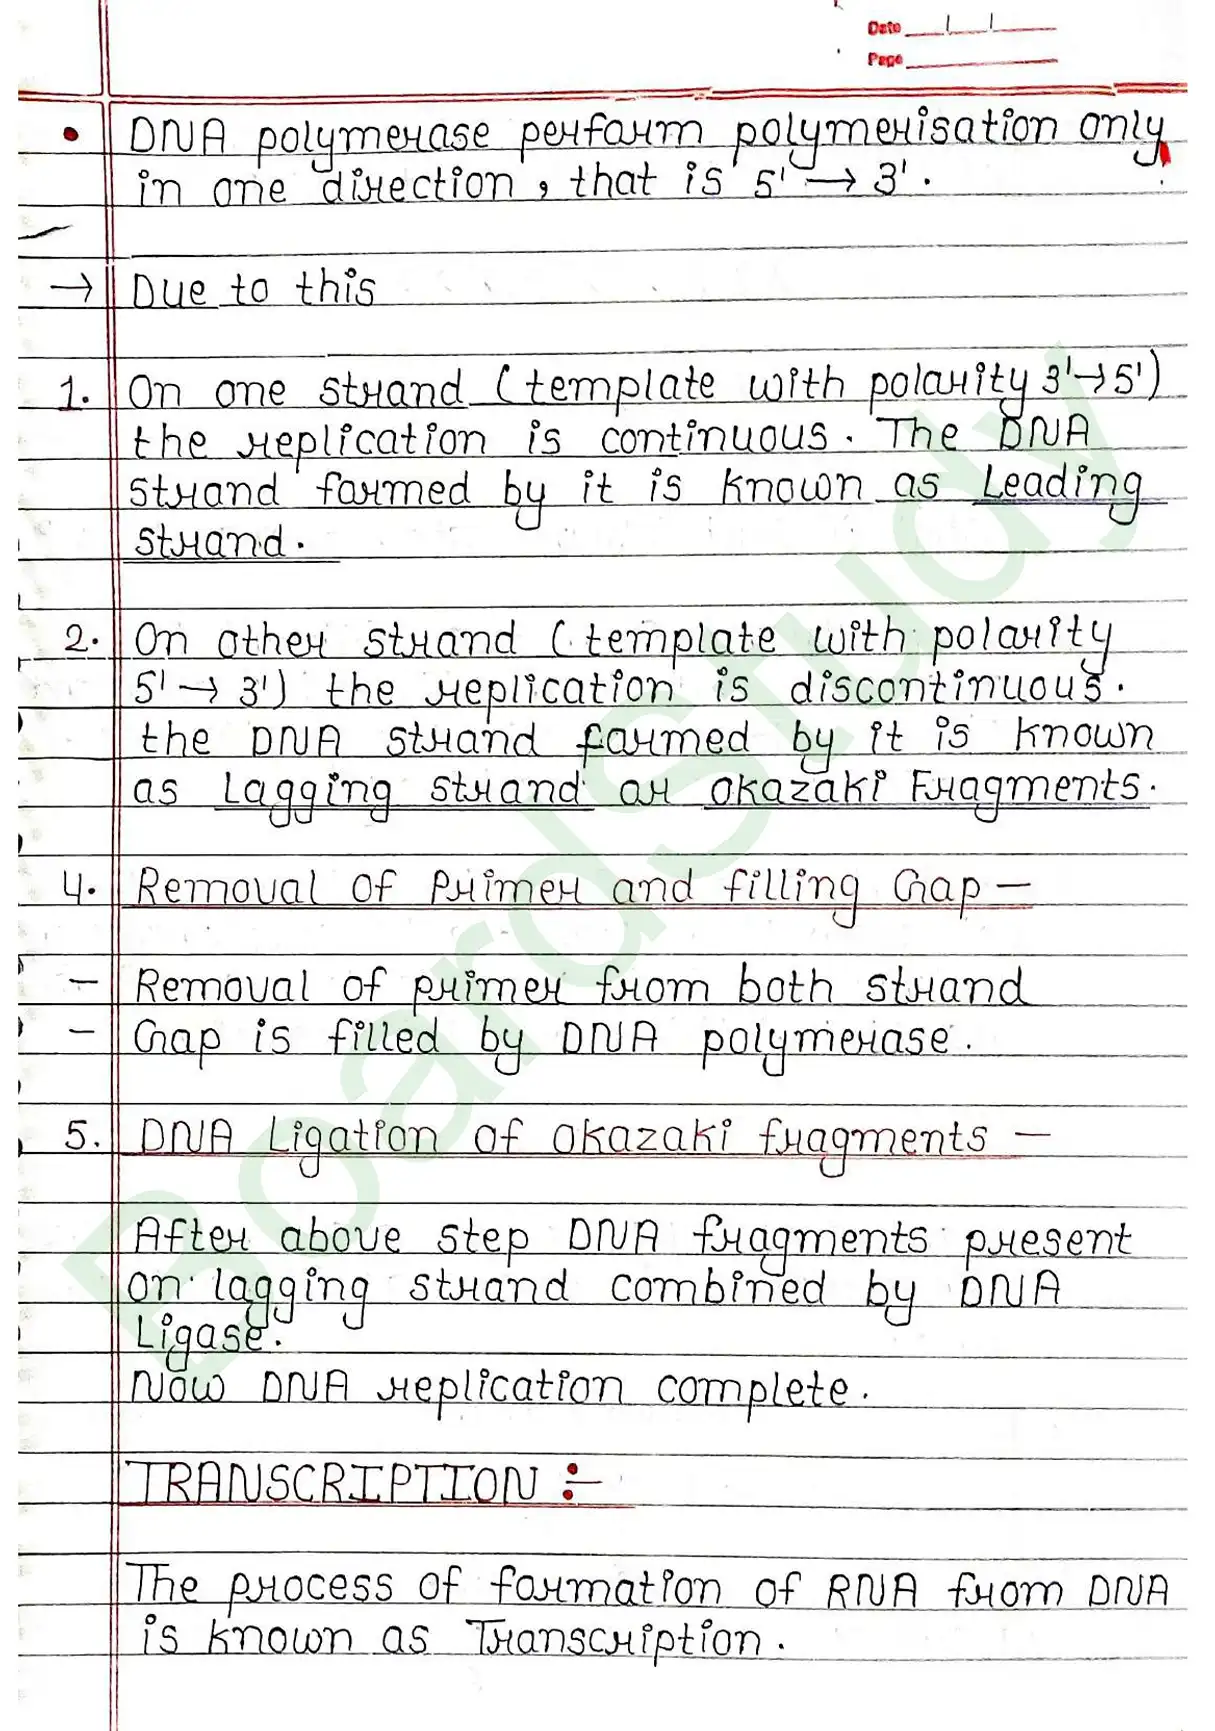 Date
Page
• DNA polymerase perform polymerisation only
in one direction, that is 5' → 3'.
→ Due to this
1. On one strand (template with polarity 3'→5')
the replication is continuous. The DNA
strand formed by it is known as Leading
strand.
2. On other strand (template with polarity
5' → 3') the replication is discontinuous.
the DNA strand formed by it is known
as Lagging strand or Okazaki Fragments.
4. Removal of Primer and filling Gap —
— Removal of primer from both strand
— Gap is filled by DNA polymerase.
5. DNA Ligation of Okazaki fragments —
After above step DNA fragments present
on lagging strand combined by DNA
Ligase.
Now DNA replication complete.
TRANSCRIPTION :–
The process of formation of RNA from DNA
is known as Transcription.
BoardStudy